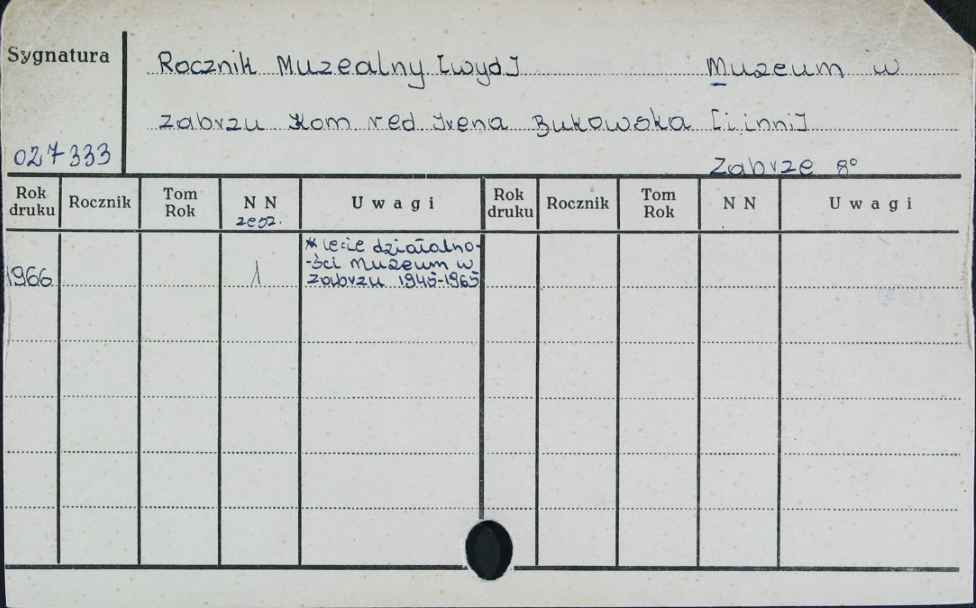 Sygnatura
Rocznik Muzealny [wyd] Muzeum w
Zabrzu Kom red Irena Bukowska [i inni]
027333
Zabrze 8°
Rok druku Rocznik Tom Rok N N zesz. U w a g i Rok druku Rocznik Tom Rok N N U w a g i
* lecie działalno-
-ści Muzeum w
1966 1 Zabrzu 1945-1965